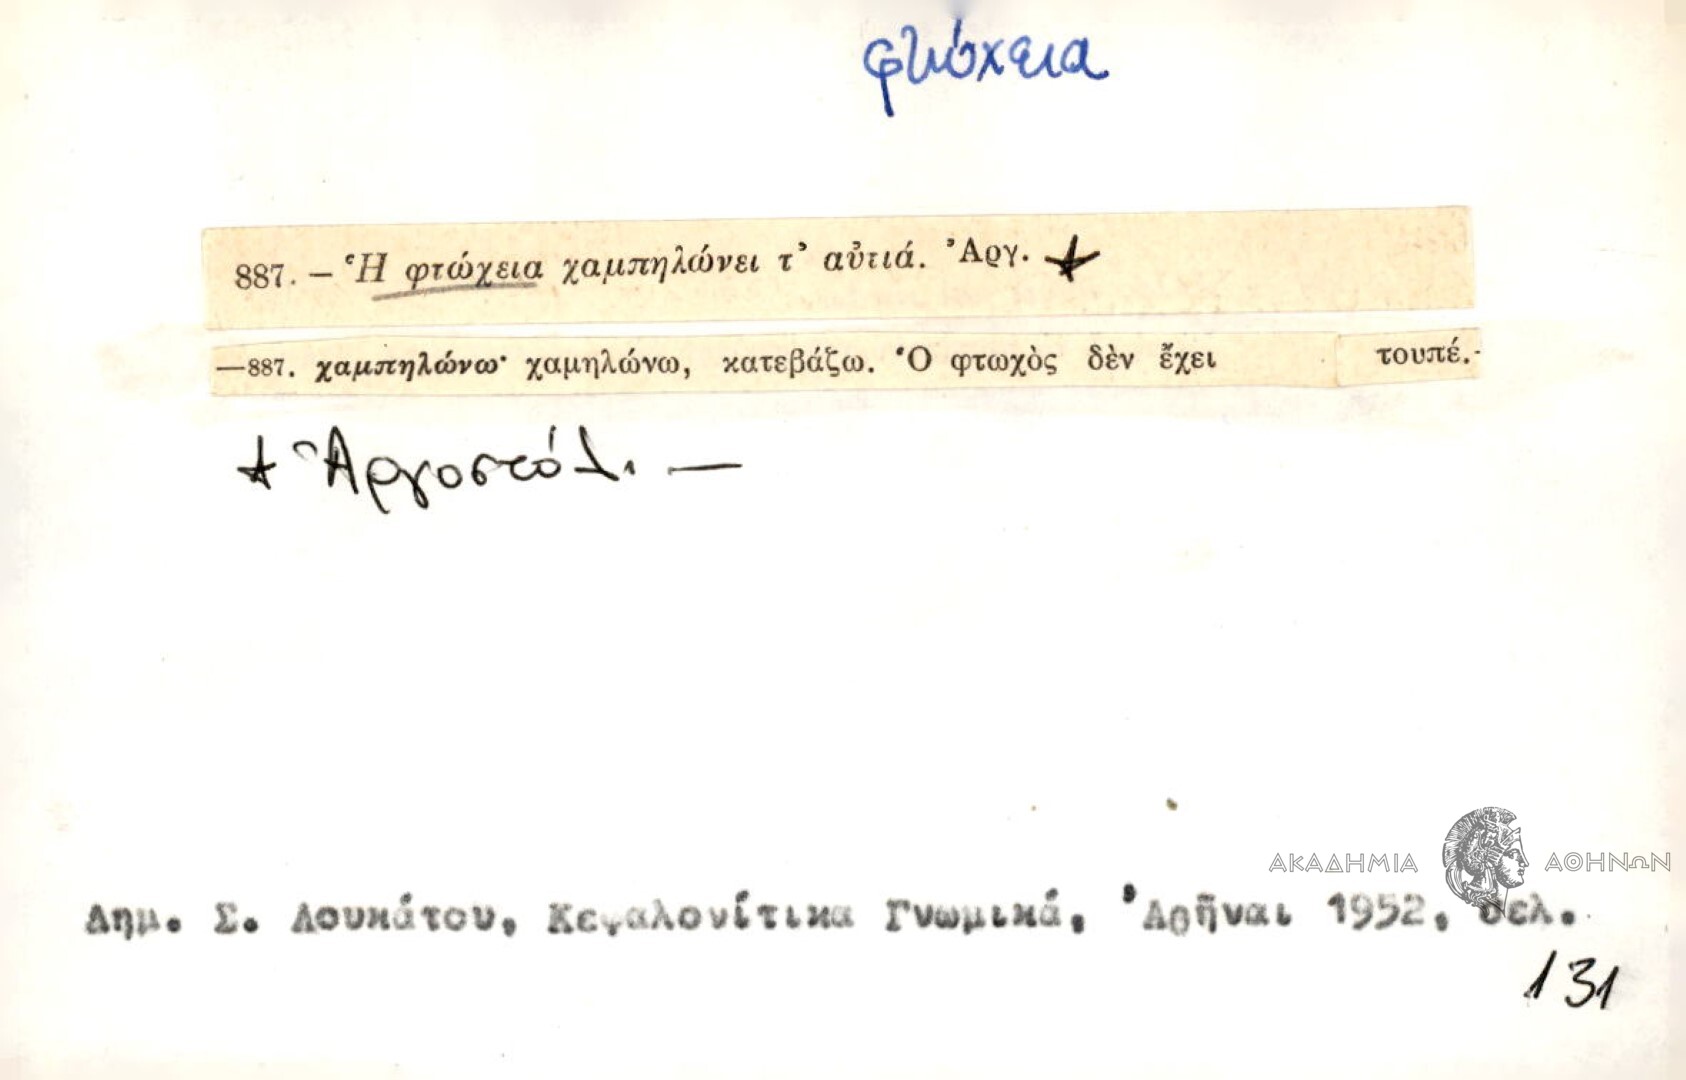 φτώχεια
887. – Ἡ φτώχεια χαμπηλώνει τ' αὐτιά. Ἀργ. +
—887. χαμπηλώνω· χαμηλώνω, κατεβάζω. Ὁ φτωχὸς δὲν ἔχει τουπέ.-
+ Ἀργοστόλι. —
ΑΚΑΔΗΜΙΑ ΑΘΗΝΩΝ
Δημ. Σ. Λουκάτου, Κεφαλονίτικα Γνωμικά, Ἀθῆναι 1952, σελ.
131